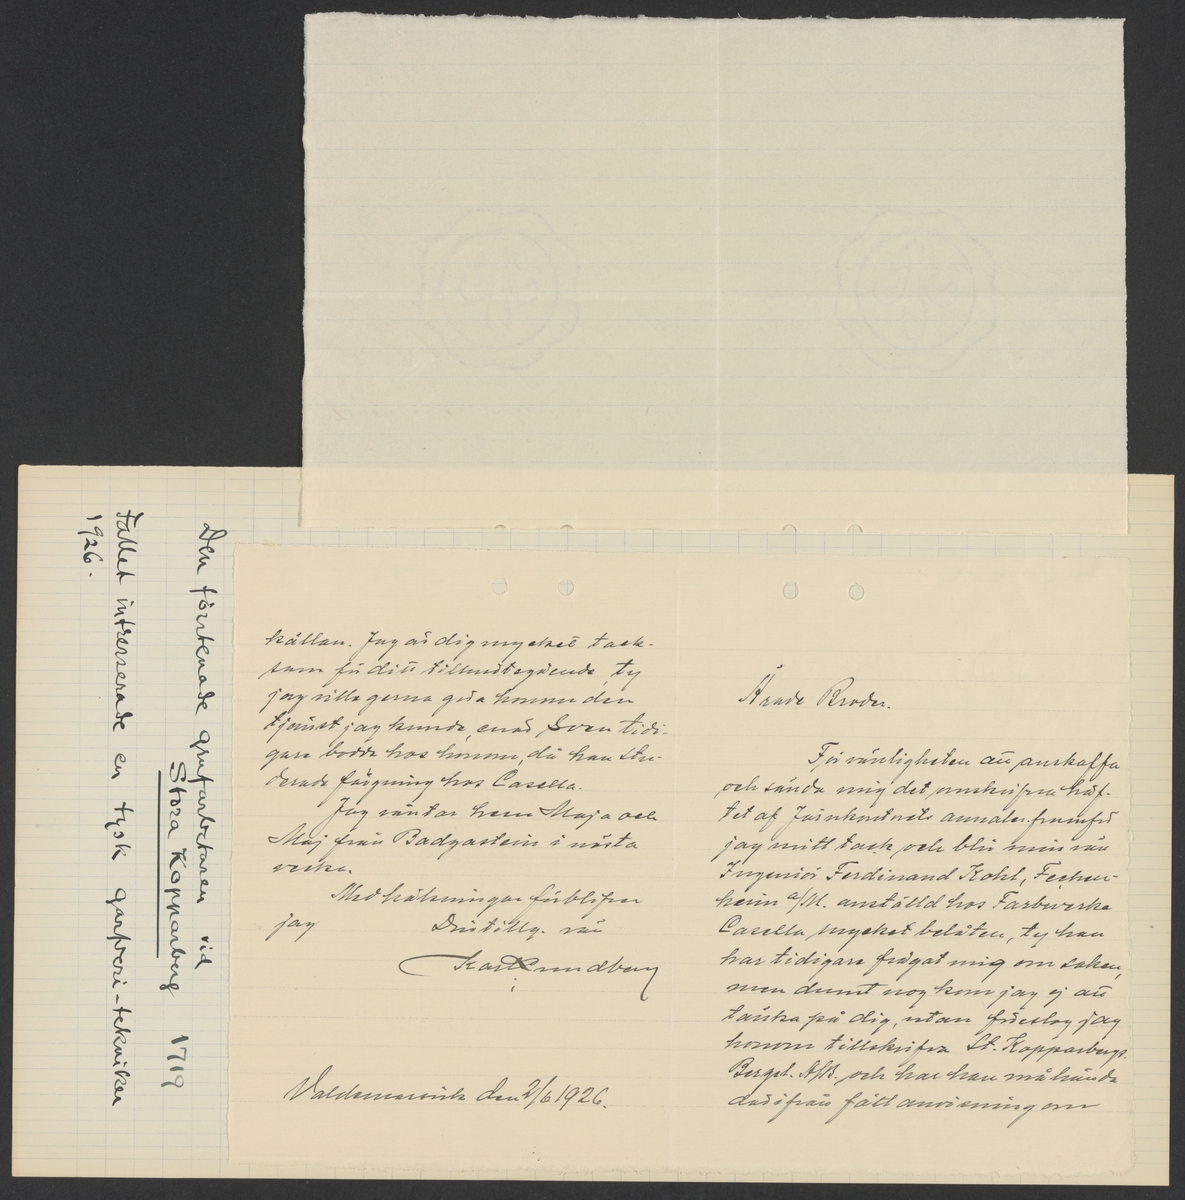 Den förstenade grufarbetaren vid
Stora Kopparberg 1719
Fallet intresserade en tysk garfveri-tekniker
1926.
Ärade Broder.
För vänligheten att anskaffa
och sända mig det omskrifna häf-
tet af Järnkontorets annaler framför
jag mitt tack, och blir min vän
Ingeniör Ferdinand Kohl, Fechen-
heim a/M. anställd hos Farbwerke
Casella mycket belåten, ty han
har tidigare frågat mig om saken,
men dumt nog kom jag ej att
tänka på dig, utan föreslog jag
honom tillskrifva St. Kopparbergs
Bergsl. A/B., och har han måhända
därifrån fått anvisning om
källan. Jag är dig mycket tack-
sam för ditt tillmötegående, ty
jag ville gerna göra honom den
tjänst jag kunde, enär Sven tidi-
gare bodde hos honom, då han stu-
derade färgning hos Casella.
Jag väntar hem Maja och
Maj från Badgastein i nästa
vecka.
Med hälsningar förblifver
jag Din tillg. vän
Karl Lundberg
Valdemarsvik den 2/6 1926.